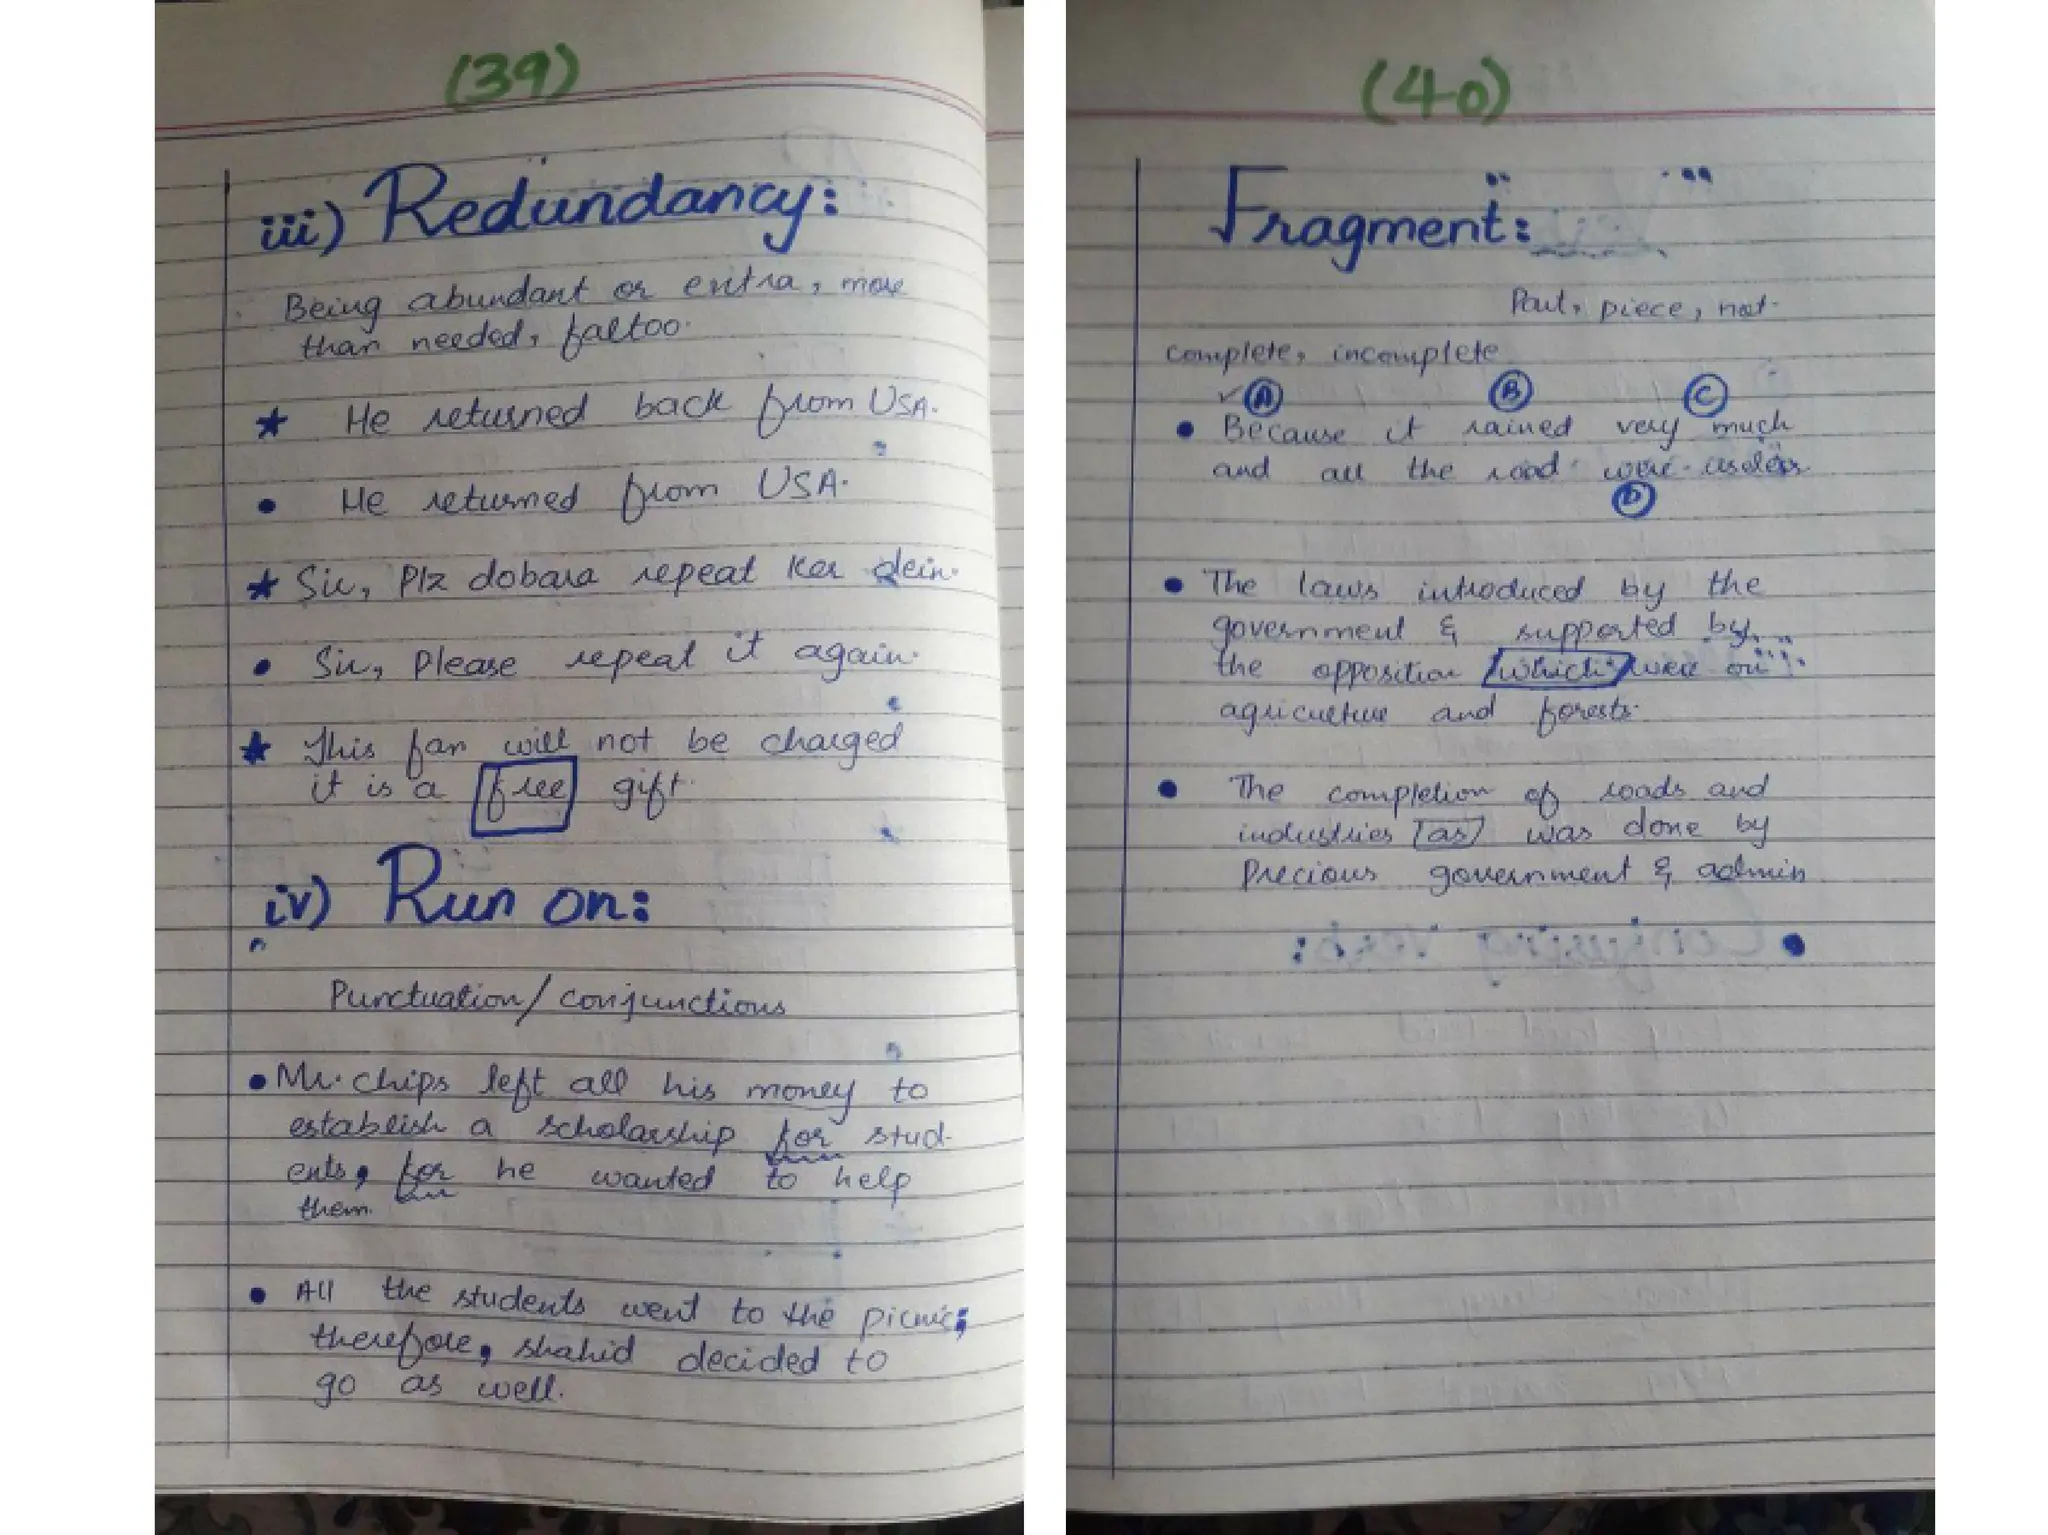 (39)
iii) Redundancy:
Being abundant or extra, more
than needed, faltoo.
★ He returned back from USA.
• He returned from USA.
★ Sir, Plz dobara repeat ker dein.
• Sir, Please repeat it again.
★ This fan will not be charged
it is a free gift.
iv) Run on:
Punctuation/conjunctions
• Mr. Chips left all his money to
establish a scholarship for stud-
ents, for he wanted to help
them.
• All the students went to the picnic;
therefore, shahid decided to
go as well.
(40)
Fragment:
Part, piece, not
complete, incomplete
✓ A B C
• Because it rained very much
and all the road were useless
D
• The laws introduced by the
government & supported by
the opposition which were on
agriculture and forests.
• The completion of roads and
industries as was done by
Precious government & admin